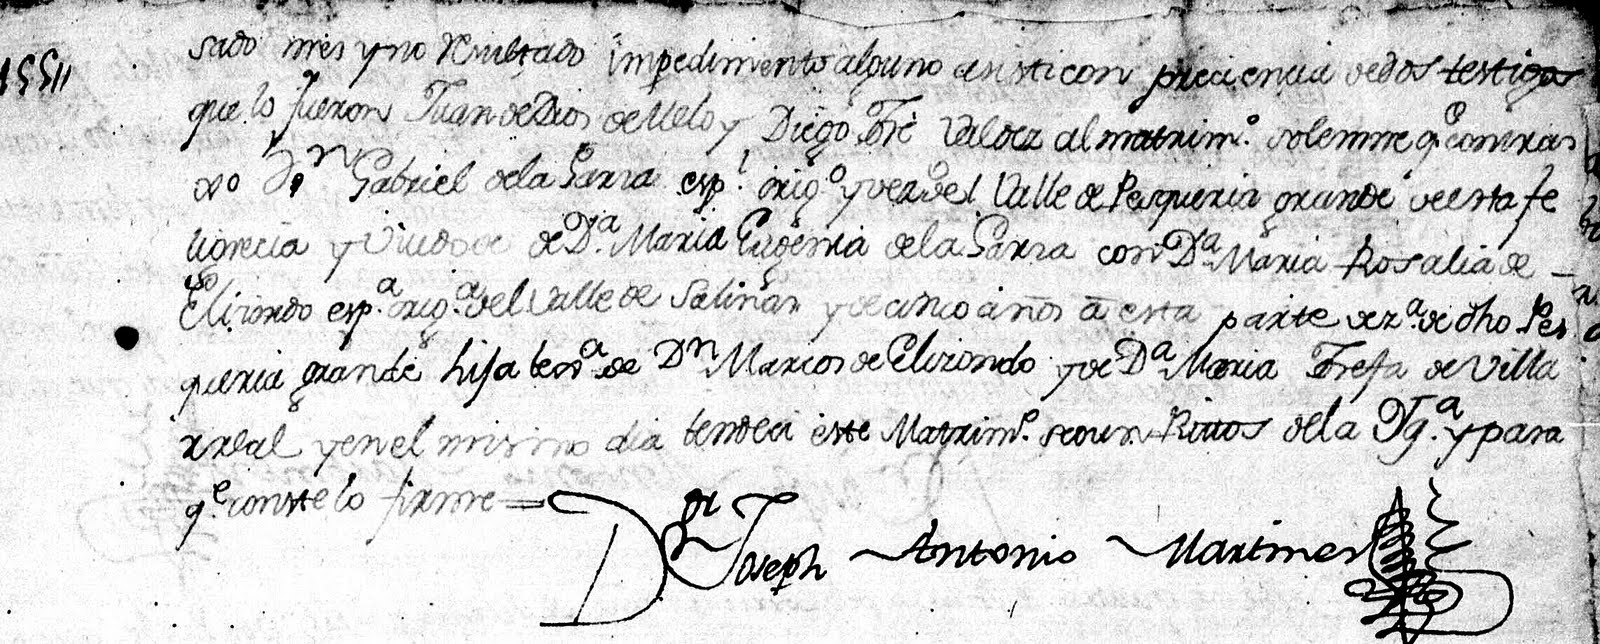 sado mes y no Resultado impedimento alguno asisti con presiencia de dos testigos
que lo fueron Juan de Dios de Melo y Diego Jôe Valdez al matrim.º solemne q.e contrax
do D.n Gabriel de la Garza esp.l orig.o y vez.o del Valle de Pesqueria grande de esta fe
ligrecia y Viudo de D.a Maria Eugenia de la Garza con D.a Maria Rosalia de
Elizondo esp.a orig.a del Valle de Salinas y de cinco años a esta parte vez.a de dho Pes
queria grande hija lex.a de D.n Marcos de Elizondo y de D.a Maria Josefa de Villa
rreal y en el mismo dia este Matrim.o segun Rittos de la Ig.a y para
q.e conste lo firme =
D.or Joseph Antonio Martinez